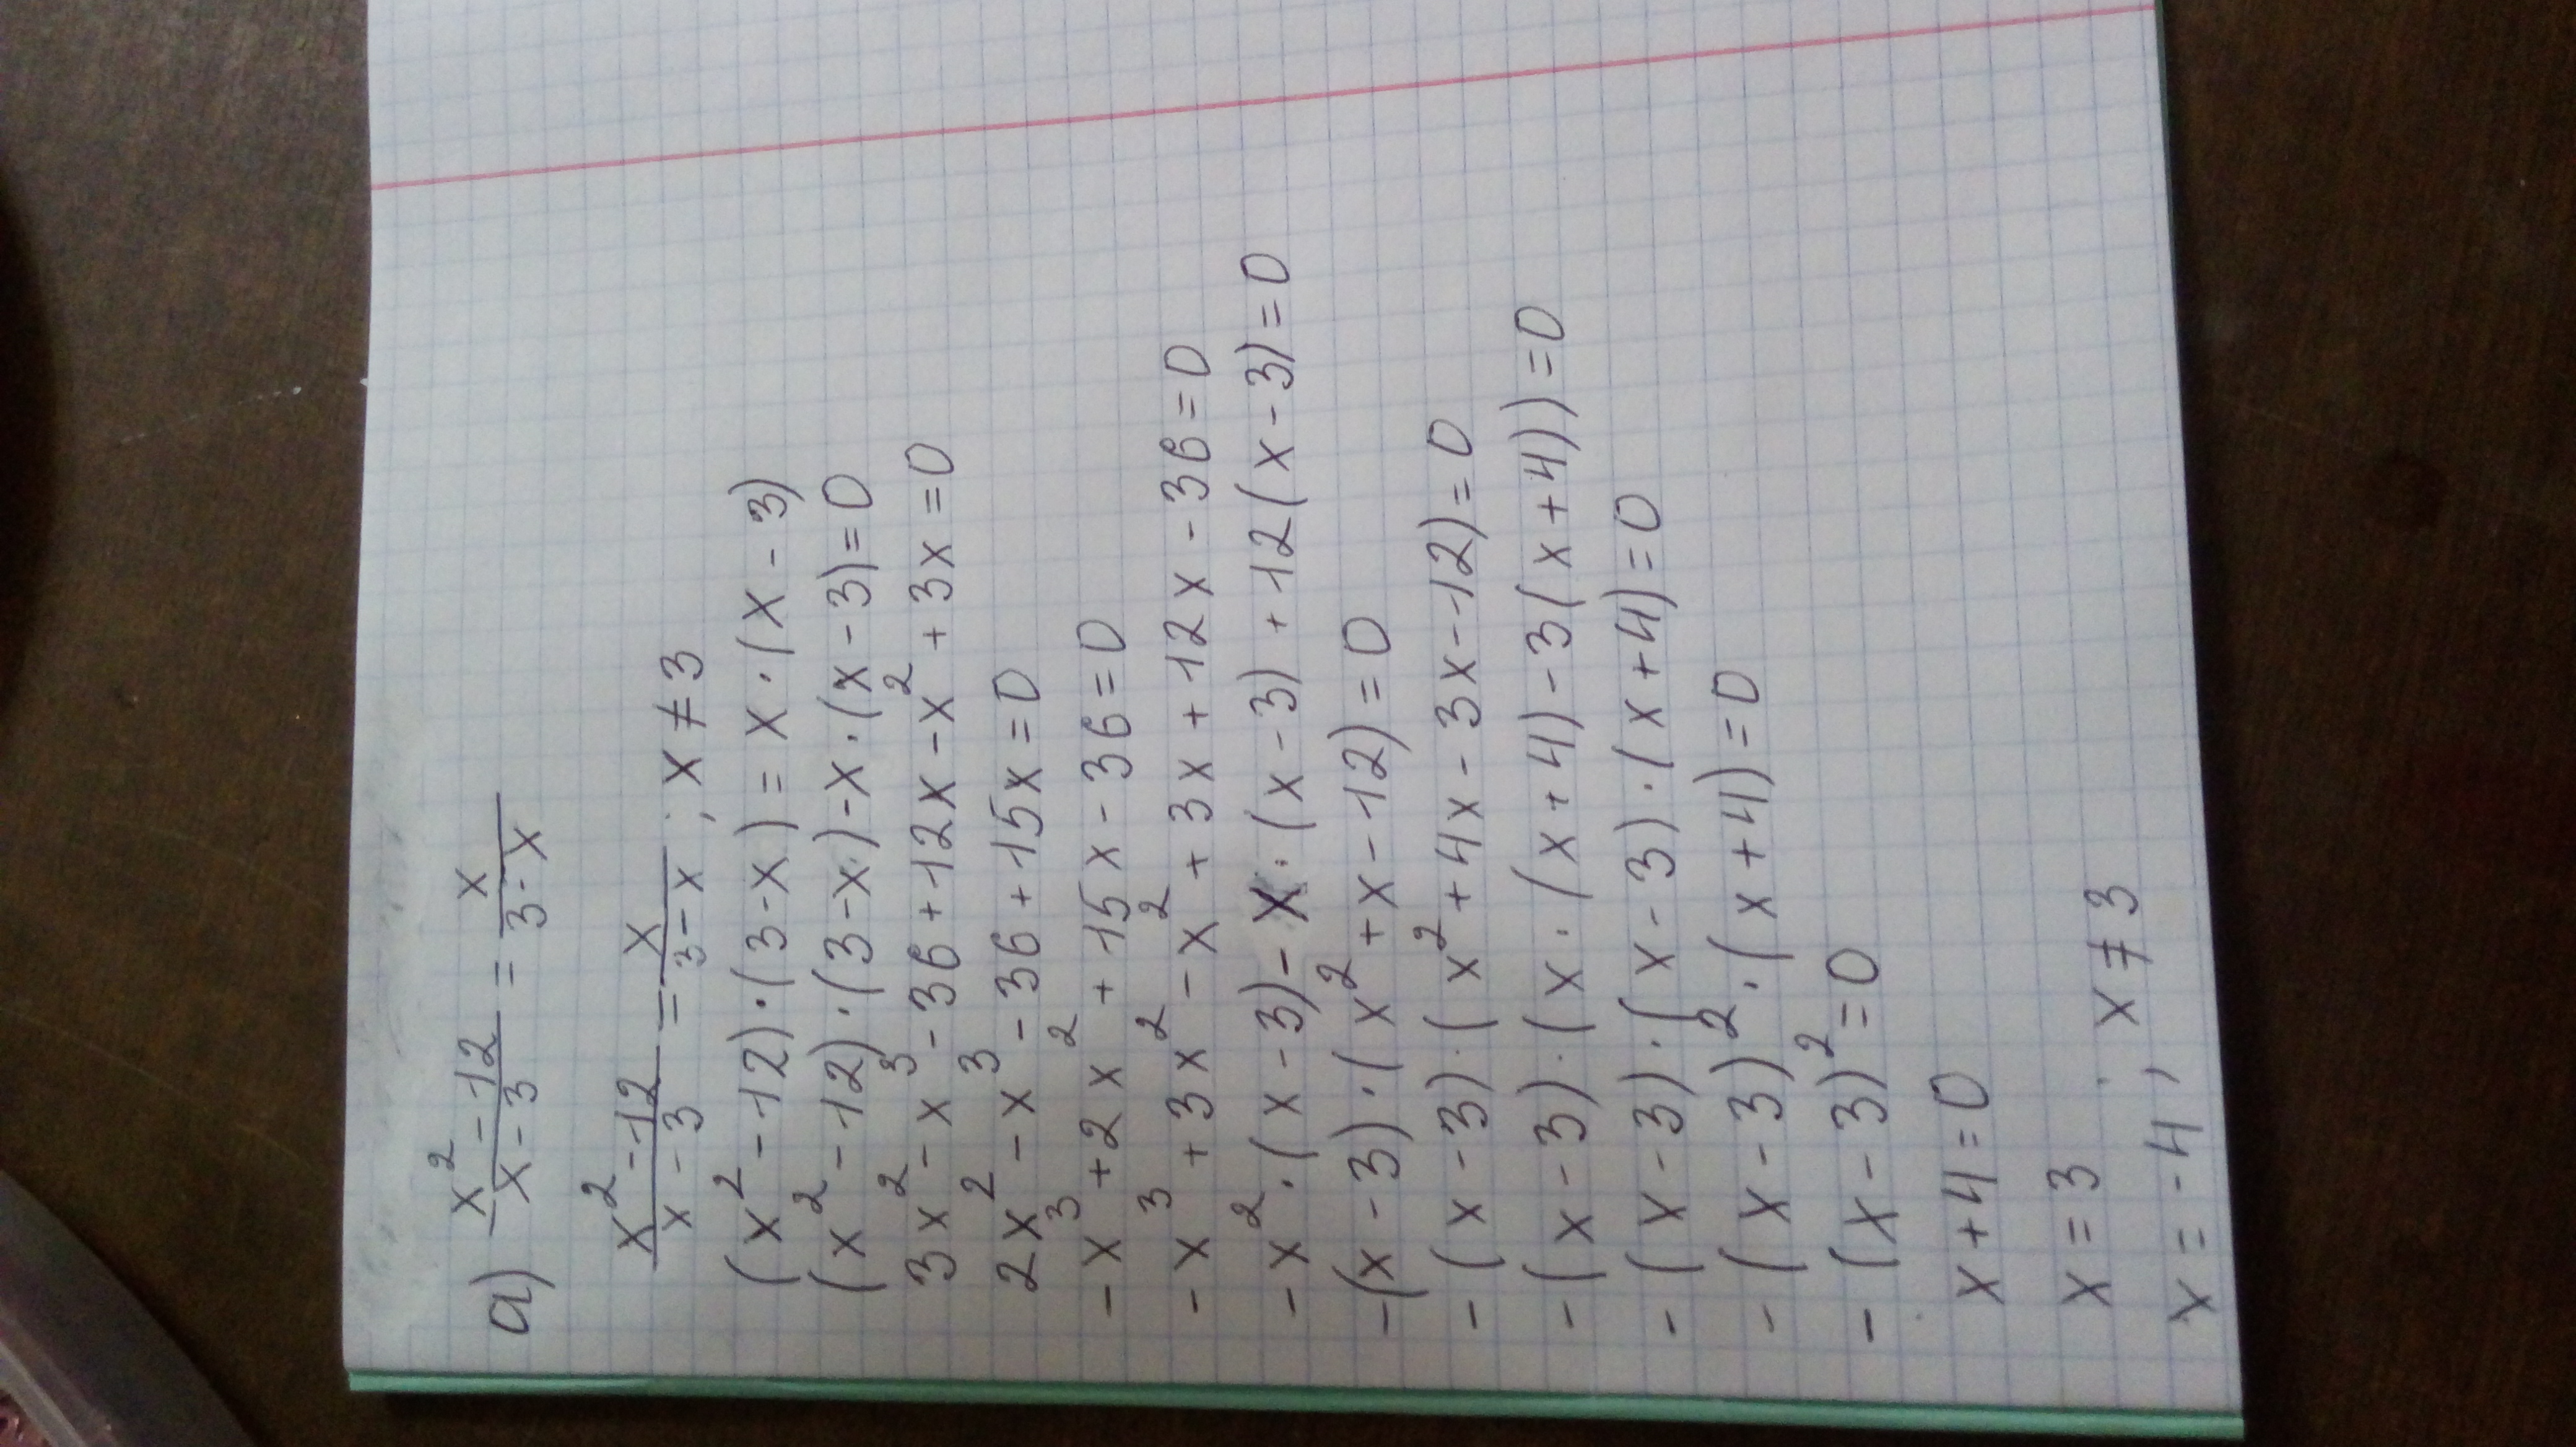 а) x²-12/x-3 = x/3-x
x²-12/x-3 = x/3-x ; x≠3
(x²-12)·(3-x)=x·(x-3)
(x²-12)·(3-x)-x·(x-3)=0
3x²-x³-36+12x-x²+3x=0
2x²-x³-36+15x=0
-x³+2x²+15x-36=0
-x³+3x²-x²+3x+12x-36=0
-x²·(x-3)-x·(x-3)+12(x-3)=0
-(x-3)·(x²+x-12)=0
-(x-3)·(x²+4x-3x-12)=0
-(x-3)·(x·(x+4)-3(x+4))=0
-(x-3)·(x-3)·(x+4)=0
-(x-3)²·(x+4)=0
-(x-3)²=0
x+4=0
x=3
x=-4 ; x≠3